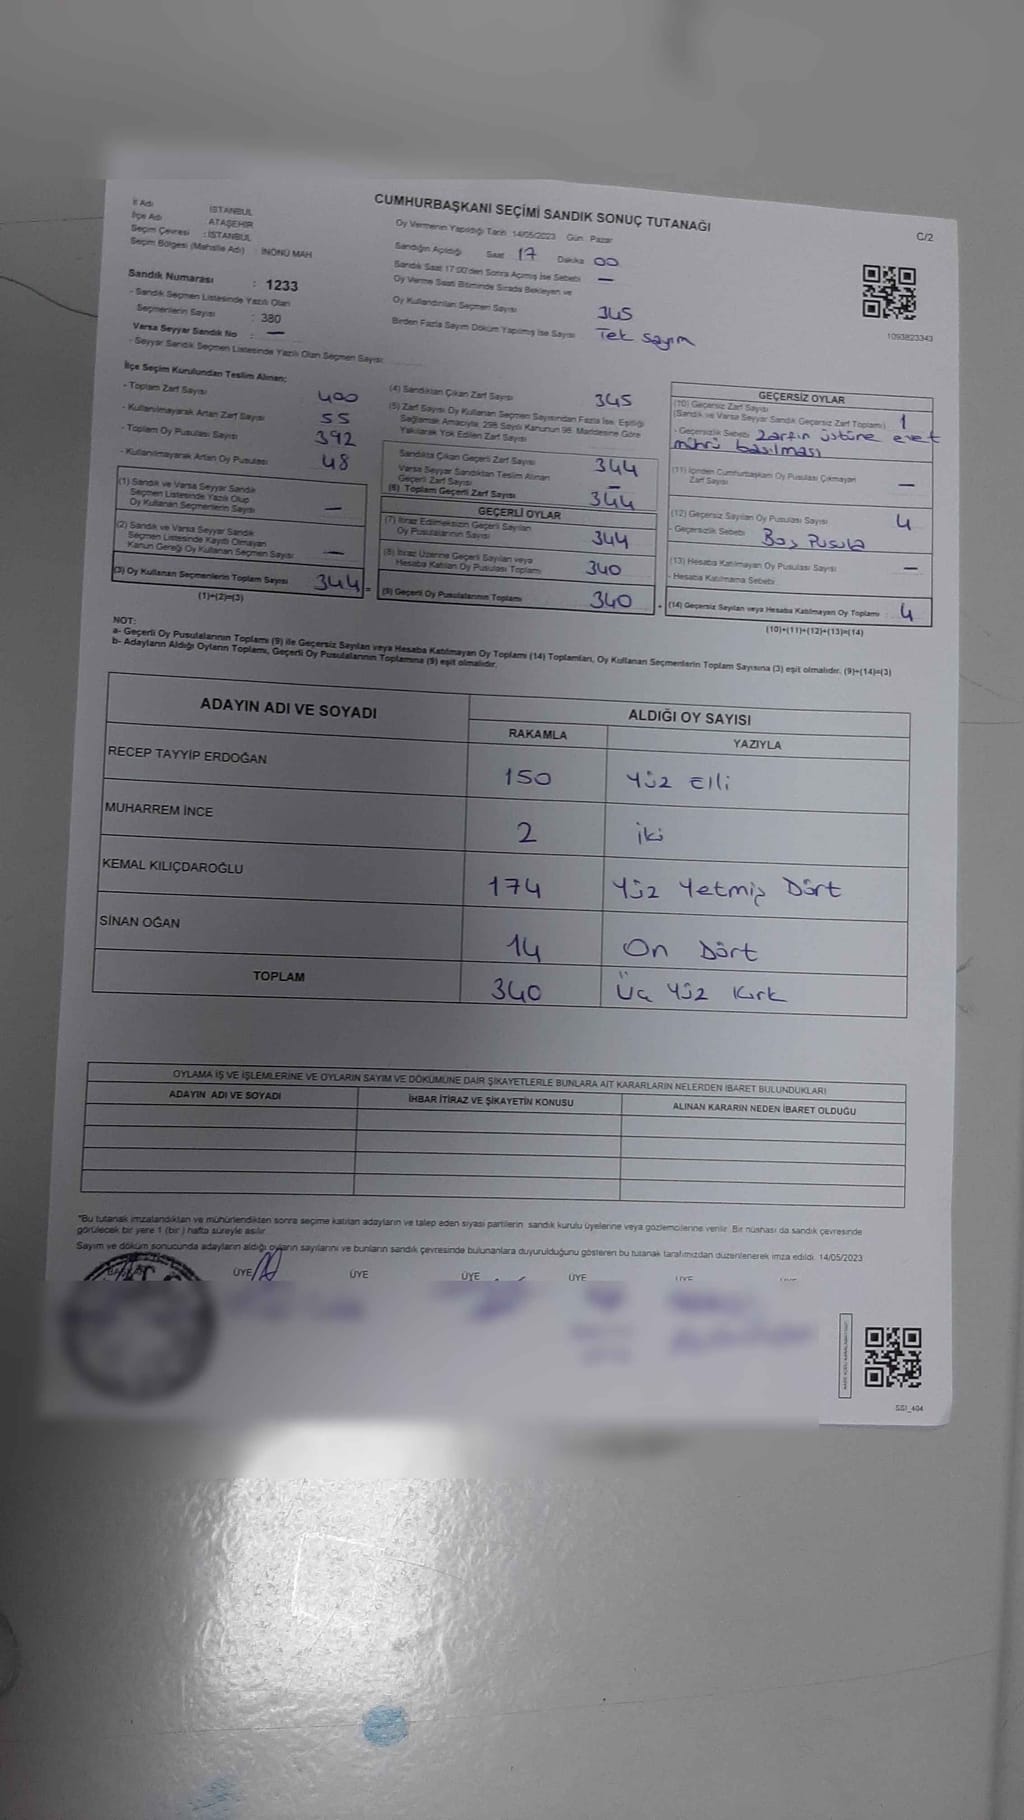 CUMHURBAŞKANI SEÇİMİ SANDIK SONUÇ TUTANAĞI
C/2
İl Adı İSTANBUL
İlçe Adı ATAŞEHİR
Seçim Çevresi : İSTANBUL
Seçim Bölgesi (Mahalle Adı) : İNÖNÜ MAH
Sandık Numarası : 1233
- Sandık Seçmen Listesinde Yazılı Olan
Seçmenlerin Sayısı : 380
Varsa Seyyar Sandık No : —
- Seyyar Sandık Seçmen Listesinde Yazılı Olan Seçmen Sayısı
Oy Vermenin Yapıldığı Tarih 14/05/2023 Gün Pazar
Sandığın Açıldığı Saat 17 Dakika 00
Sandık Saat 17:00'den Sonra Açılmış İse Sebebi —
Oy Verme Saati Bitiminde Sırada Bekleyen ve
Oy Kullandırılan Seçmen Sayısı 345
Birden Fazla Sayım Döküm Yapılmış İse Sayısı Tek sayım
1093823343
İlçe Seçim Kurulundan Teslim Alınan;
- Toplam Zarf Sayısı 400
- Kullanılmayarak Artan Zarf Sayısı 55
- Toplam Oy Pusulası Sayısı 392
- Kullanılmayarak Artan Oy Pusulası 48
(1) Sandık ve Varsa Seyyar Sandık
Seçmen Listesinde Yazılı Olup
Oy Kullanan Seçmenlerin Sayısı —
(2) Sandık ve Varsa Seyyar Sandık
Seçmen Listesinde Kayıtlı Olmayan
Kanun Gereği Oy Kullanan Seçmen Sayısı —
(3) Oy Kullanan Seçmenlerin Toplam Sayısı 344 =
(1)+(2)=(3)
(4) Sandıktan Çıkan Zarf Sayısı 345
(5) Zarf Sayısı Oy Kullanan Seçmen Sayısından Fazla İse, Eşitliği
Sağlamak Amacıyla, 298 Sayılı Kanunun 98. Maddesine Göre
Yakılarak Yok Edilen Zarf Sayısı
Sandıkta Çıkan Geçerli Zarf Sayısı 344
Varsa Seyyar Sandıktan Teslim Alınan
Geçerli Zarf Sayısı —
(6) Toplam Geçerli Zarf Sayısı 344
GEÇERLİ OYLAR
(7) İtiraz Edilmeksizin Geçerli Sayılan
Oy Pusulalarının Sayısı 344
(8) İtiraz Üzerine Geçerli Sayılan veya
Hesaba Katılan Oy Pusulası Toplamı 340
(9) Geçerli Oy Pusulalarının Toplamı 340 +
GEÇERSİZ OYLAR
(10) Geçersiz Zarf Sayısı
(Sandık ve Varsa Seyyar Sandık Geçersiz Zarf Toplamı) 1
- Geçersizlik Sebebi zarfın üstüne evet
mührü basılması
(11) İçinden Cumhurbaşkanı Oy Pusulası Çıkmayan
Zarf Sayısı —
(12) Geçersiz Sayılan Oy Pusulası Sayısı 4
- Geçersizlik Sebebi Boş Pusula
(13) Hesaba Katılmayan Oy Pusulası Sayısı —
- Hesaba Katılmama Sebebi
(14) Geçersiz Sayılan veya Hesaba Katılmayan Oy Toplamı : 4
(10)+(11)+(12)+(13)=(14)
NOT:
a- Geçerli Oy Pusulalarının Toplamı (9) ile Geçersiz Sayılan veya Hesaba Katılmayan Oy Toplamı (14) Toplamları, Oy Kullanan Seçmenlerin Toplam Sayısına (3) eşit olmalıdır. (9)+(14)=(3)
b- Adayların Aldığı Oyların Toplamı, Geçerli Oy Pusulalarının Toplamına (9) eşit olmalıdır.
ADAYIN ADI VE SOYADI
ALDIĞI OY SAYISI
RAKAMLA YAZIYLA
RECEP TAYYİP ERDOĞAN 150 Yüz Elli
MUHARREM İNCE 2 iki
KEMAL KILIÇDAROĞLU 174 Yüz Yetmiş Dört
SİNAN OĞAN 14 On Dört
TOPLAM 340 Üç Yüz Kırk
OYLAMA İŞ VE İŞLEMLERİNE VE OYLARIN SAYIM VE DÖKÜMÜNE DAİR ŞİKAYETLERLE BUNLARA AİT KARARLARIN NELERDEN İBARET BULUNDUKLARI
ADAYIN ADI VE SOYADI İHBAR İTİRAZ VE ŞİKAYETİN KONUSU ALINAN KARARIN NEDEN İBARET OLDUĞU
"Bu tutanak imzalandıktan ve mühürlendikten sonra seçime katılan adayların ve talep eden siyasi partilerin sandık kurulu üyelerine veya gözlemcilerine verilir. Bir nüshası da sandık çevresinde
görülecek bir yere 1 (bir) hafta süreyle asılır.
Sayım ve döküm sonucunda adayların aldığı oyların sayılarını ve bunların sandık çevresinde bulunanlara duyurulduğunu gösteren bu tutanak tarafımızdan düzenlenerek imza edildi. 14/05/2023
BAŞKAN ÜYE ÜYE ÜYE ÜYE ÜYE
SSI_404